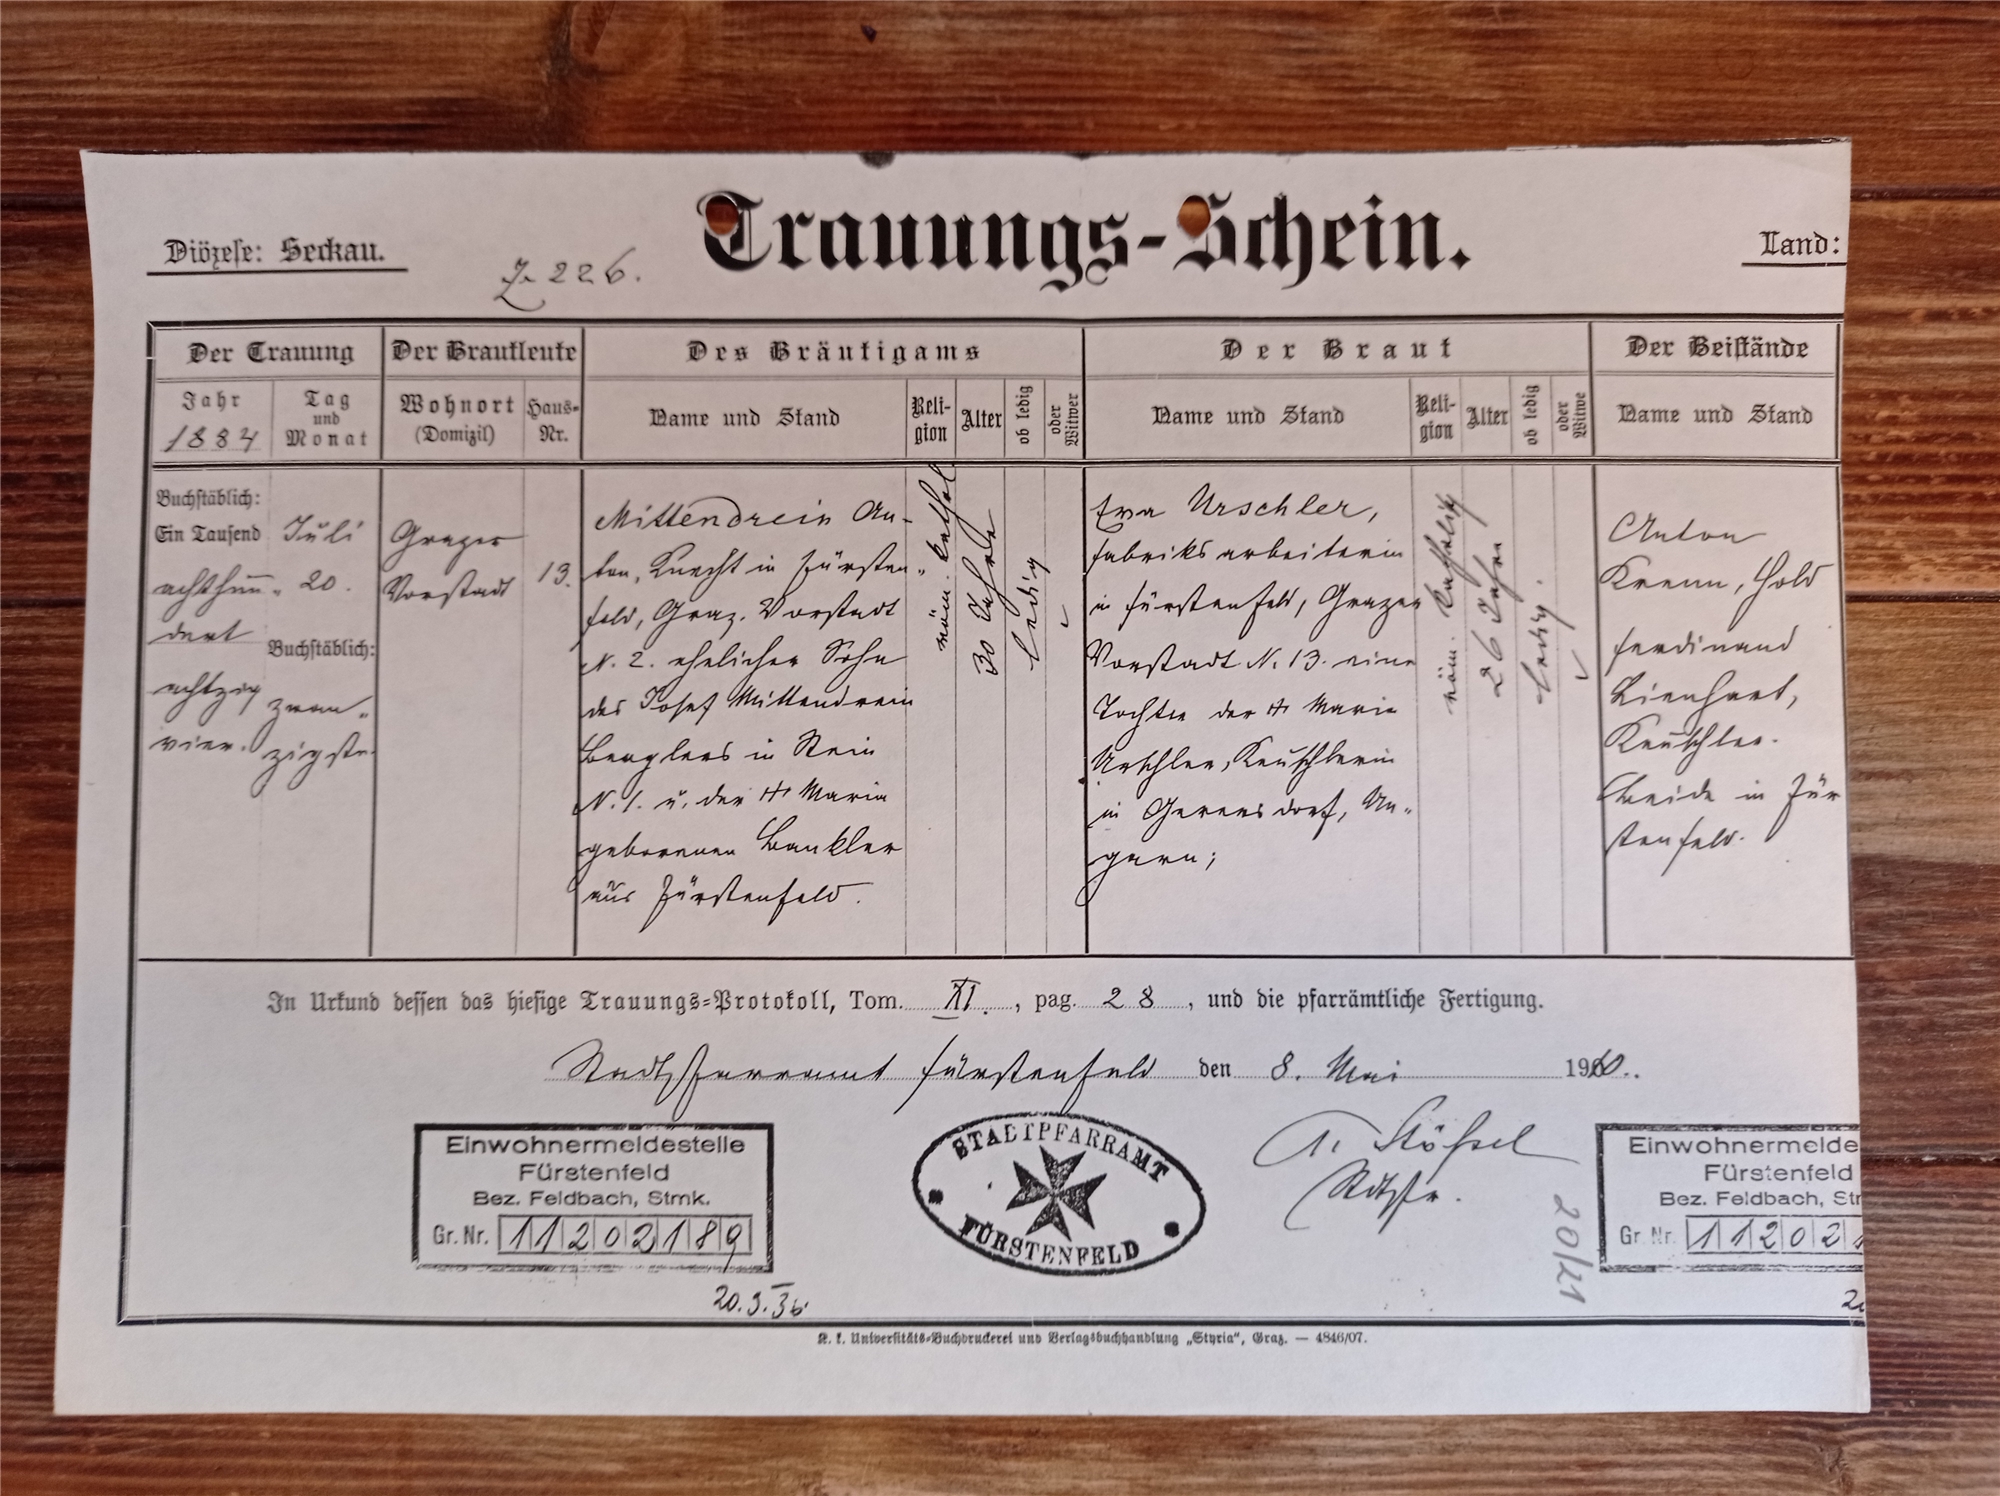 Trauungs-Schein.
Diözese: Seckau.
Z 226.
Land:
Der Trauung
Der Brautleute
Des Bräutigams
Der Braut
Der Beistände
Jahr
1884
Tag
und
Monat
Wohnort
(Domizil)
Haus-
Nr.
Name und Stand
Reli-
gion
Alter
ob ledig
oder
Witwer
Name und Stand
Reli-
gion
Alter
ob ledig
oder
Witwe
Name und Stand
Buchstäblich:
Ein Tausend
achthun-
dert
achtzig
vier.
Juli
20.
Buchstäblich:
zwan-
zigste.
Grazer
Vorstadt
13.
Mittendrein An-
ton, Knecht in Fürsten-
feld, Graz. Vorstadt
N. 2. ehelicher Sohn
des Josef Mittendrein
in Stein
N. 1. u. der ++ Maria
geborenen Bankler
aus Fürstenfeld.
röm. kathol
30 Jahre
ledig
Eva Urschler,
Fabriksarbeiterin
in Fürstenfeld, Grazer
Vorstadt N. 13. eine
Tochter der ++ Maria
Urschler, Keuschlerin
in Gerersdorf, Un-
garn;
röm. katholisch
26 Jahre
ledig.
Anton
Krenn,
Ferdinand
Lienhart,
Keuschler.
beide in Für
stenfeld.
In Urkund dessen das hiesige Trauungs-Protokoll, Tom. XI., pag. 28, und die pfarrämtliche Fertigung.
Stadtpfarramt Fürstenfeld den 8. Mai
Einwohnermeldestelle
Fürstenfeld
Bez. Feldbach, Stmk.
Gr. Nr. 11202189
20.9.36.
STADTPFARRAMT
FÜRSTENFELD
Stadtpfr.
20/21
Einwohnermelde
Fürstenfeld
Bez. Feldbach, St
Gr. Nr. 11202
K. k. Universitäts-Buchdruckerei und Verlagsbuchhandlung „Styria“, Graz. — 4846/07.